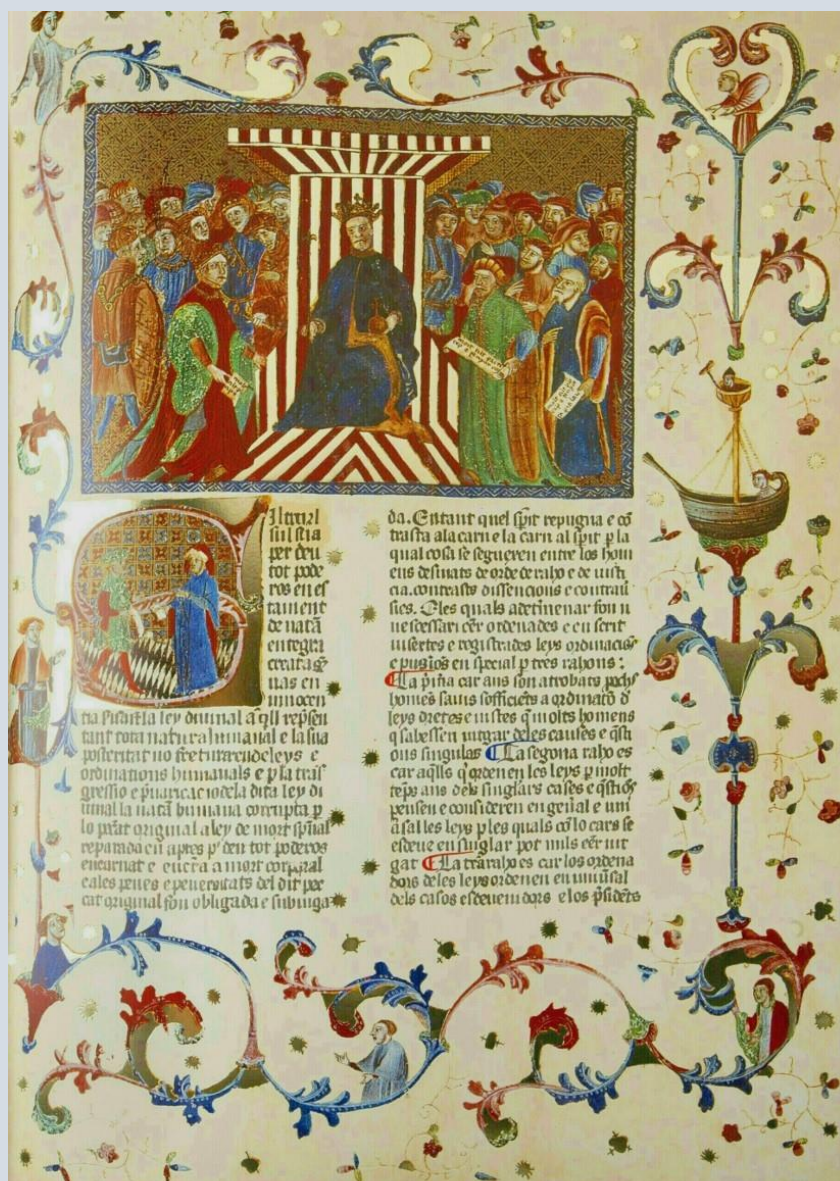 per deu
tot pode
ros en es
tament
de natã
entegra
creata
nas en
innocen
tia la ley diuinal a q̃ll rep̃sen
tant tota natura humanal e la sua
posteritat no freturarẽ de leys e
ordinations humanals e p la tras
gressio e p̃uaricacio de la dita ley di
uinal la natã humana corrupta p
lo pecat original a ley de mort sp̃ial
reparada en apres p̃ deu tot poderos
encarnat e a mort corp̃ral
e ales penes e del dit pec
cat original son obligada e subiuga
da. En tant quel sp̃it repugna e cõ
trasta ala carn e la carn al sp̃it p la
qual cosa se segueren entre los hom
ens desuiats de orde de raho e de iusti
cia. contrasts dissencions e contraũ
sies. Ales quals fon
necessari eẽr ordenades e en scrit
insertes e registrades leys ordinaciõs
e en special p tres rahons :
La p̃m̃a car ans son atrobats pochs
homẽs sauis sofficiẽts a ordinatõ d̃
leys dretes e iustes q̃ molts homens
q̃ sabessen iutgar deles causes e q̃sti
ons singulas La segona raho es
car aq̃lls q̃ ordenen les leys p molt
tẽps ans dels singlars cases e q̃stiõs
pensen e consideren en geñal e uni
ũsal les leys p les quals cõ lo cars se
esdeue en suglar pot mils eẽr iut
gat La raho es car los ordena
dors deles leys ordenen en uniũsal
dels casos esdeuenidors e los p̃sidẽts